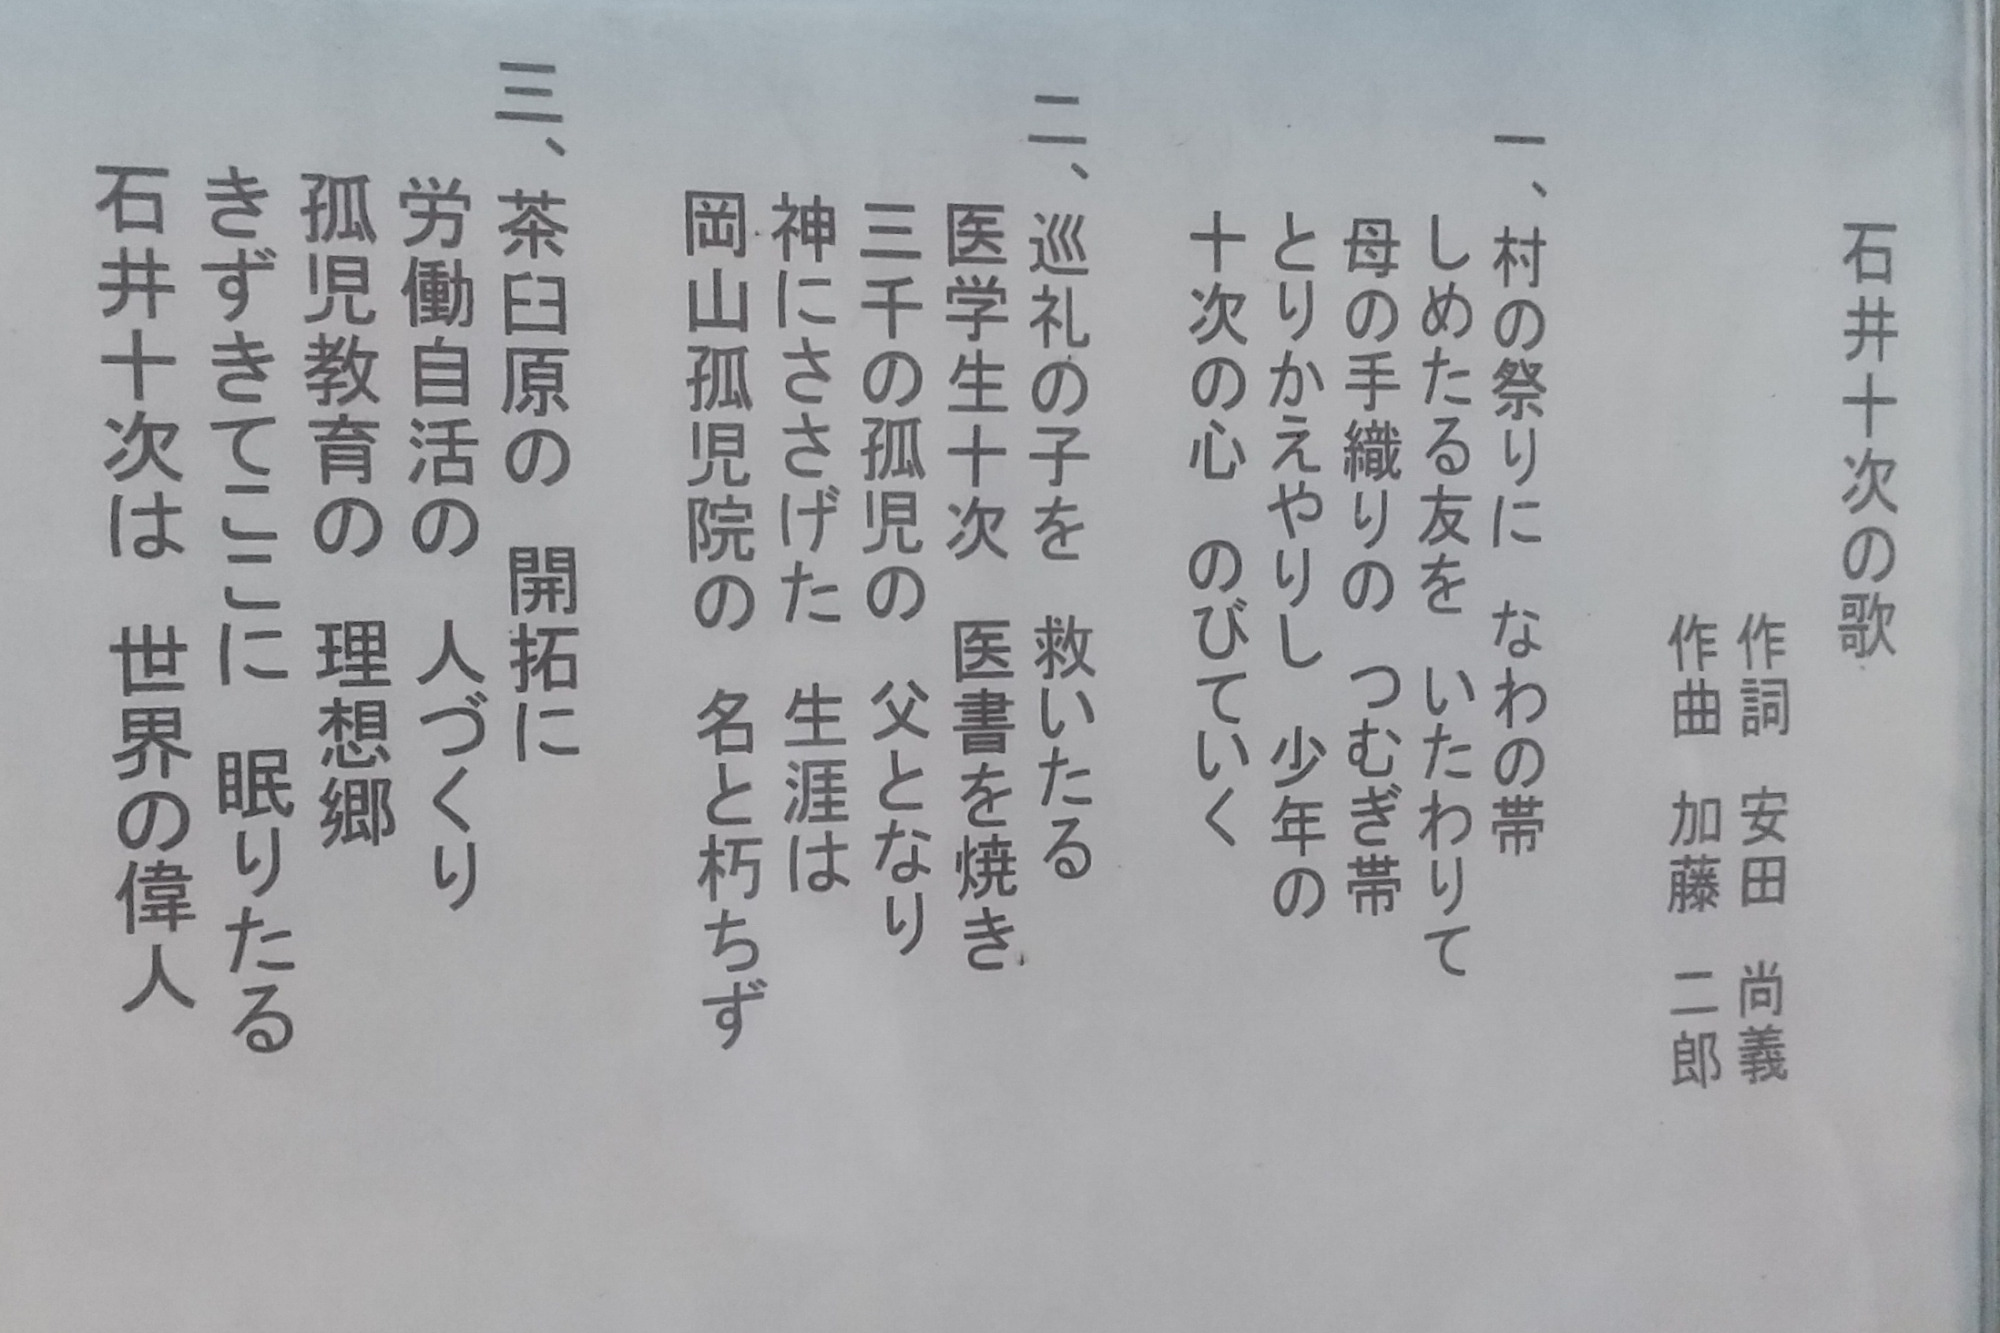 石井十次の歌
作詞 安田 尚義
作曲 加藤 二郎
一、村の祭りに なわの帯
しめたる友を いたわりて
母の手織りの つむぎ帯
とりかえやりし 少年の
十次の心 のびていく
二、巡礼の子を 救いたる
医学生十次 医書を焼き
三千の孤児の 父となり
神にささげた 生涯は
岡山孤児院の 名と朽ちず
三、茶臼原の 開拓に
労働自活の 人づくり
孤児教育の 理想郷
きずきてここに 眠りたる
石井十次は 世界の偉人